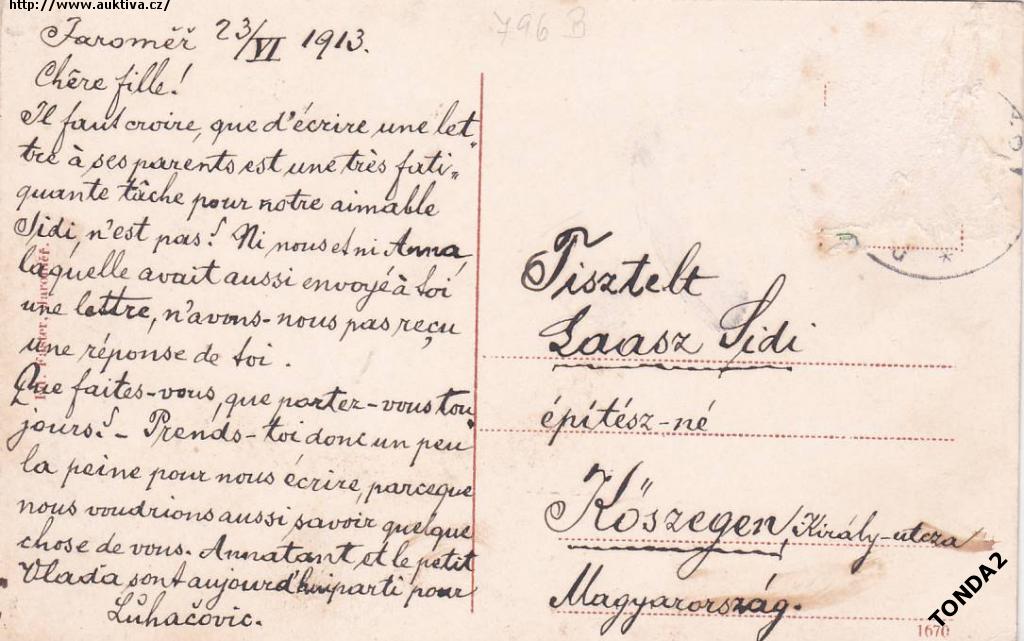 http://www.auktiva.cz/
796 B
Jaroměř 23/VI 1913.
Chêre fille!
Il faut croire, que d'écrire une let„
tre à ses parents est une très fati„
quante tâche pour notre aimable
Sidi, n'est pas? Ni nous et ni Anna,
laquelle avait aussi envoyé à toi
une lettre, n'avons-nous pas reçu
une réponse de toi.
Que faites-vous, que portez-vous tou„
jours? - Prends-toi donc un peu
la peine pour nous écrire, parceque
nous voudrions aussi savoir quelque
chose de vous. Annatant et le petit
Vlada sont aujourd'hui parti pour
Luhačovic.
Tisztelt
Gaasz Sidi
építész-né
Kőszegen, Király-utcza
Magyarország.
TONDA2
1670